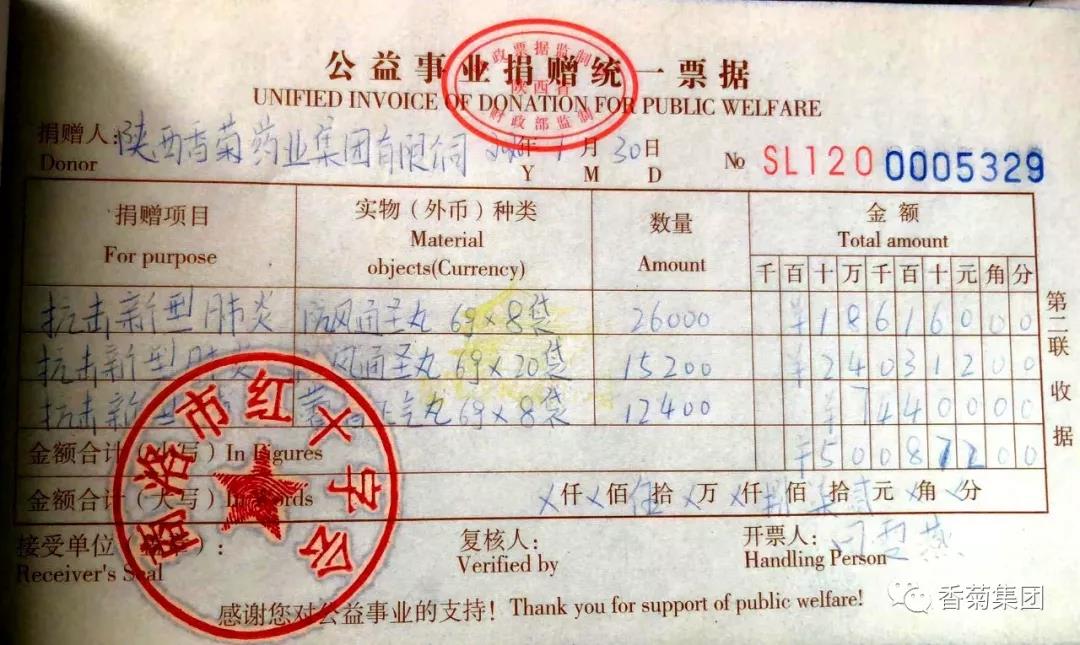 公益事业捐赠统一票据
财政票据监制
陕西省
财政部监制
UNIFIED INVOICE OF DONATION FOR PUBLIC WELFARE
捐赠人: 陕西香菊药业集团有限公司 2020年 1月 30日
Donor Y M D № SL120 0005329
捐赠项目 实物（外币）种类 数量 金额
For purpose Material objects(Currency) Amount Total amount
千 百 十 万 千 百 十 元 角 分
抗击新型肺炎 防风通圣丸 6g×8袋 26000 ¥18616000
抗击新型肺炎 防风通圣丸 6g×20袋 15200 ¥24031200
抗击新型 藿香正气丸 6g×8袋 12400 ¥7440000
金额合计（小写）In Figures ¥50087200
金额合计（大写）In Words ×仟×佰伍拾×万×仟捌佰柒拾贰元×角×分
接受单位（盖章）: 复核人: 开票人: 闫雪燕
Receiver's Seal Verified by Handling Person
商洛市红十字会
感谢您对公益事业的支持! Thank you for support of public welfare!
第二联 收据
香菊集团